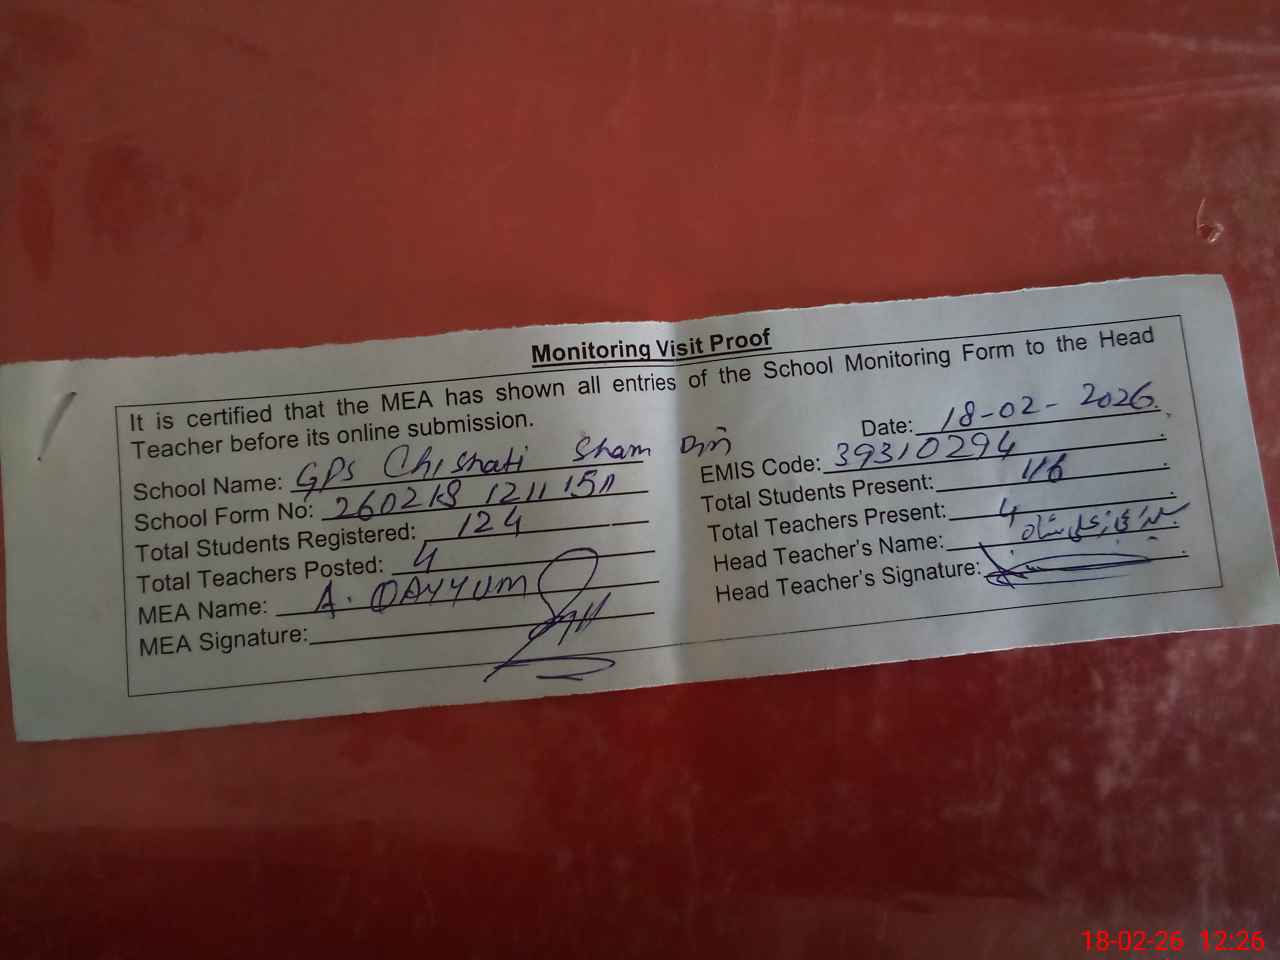 Monitoring Visit Proof
It is certified that the MEA has shown all entries of the School Monitoring Form to the Head
Teacher before its online submission.
Date: 18-02-2026
School Name: GPS Chishati Sham Din
EMIS Code: 39310294
School Form No: 260218 121115
Total Students Present: 116
Total Students Registered: 124
Total Teachers Present: 4
Total Teachers Posted: 4
Head Teacher's Name:
MEA Name: A. QAYYUM
Head Teacher's Signature:
MEA Signature:
18-02-26 12:26